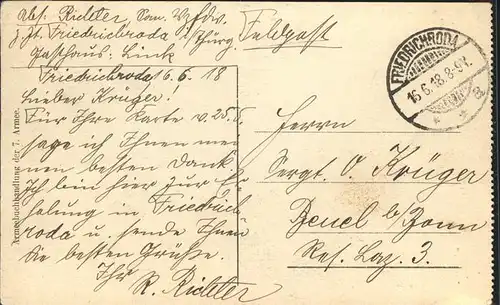 Abs. Richter, San. Vzfdw.
z. Zt. Friedrichroda i/Thürg.
Feldpost
Gasthaus: Link
Friedrichroda 16.6.18
Lieber Krüger!
Für Ihre Karte v. 25.5.
sage ich Ihnen mei
nen besten Dank
Ich bin hier zur Er
holung in Friedrich
roda u. sende Ihnen
die besten Grüße.
Ihr
R. Richter
Armeebuchhandlung der 7. Armee.
FRIEDRICHRODA
16.6.18.8-9V.
Herrn
Sergt. O. Krüger
Beuel b/Bonn
Res. Laz. 3.